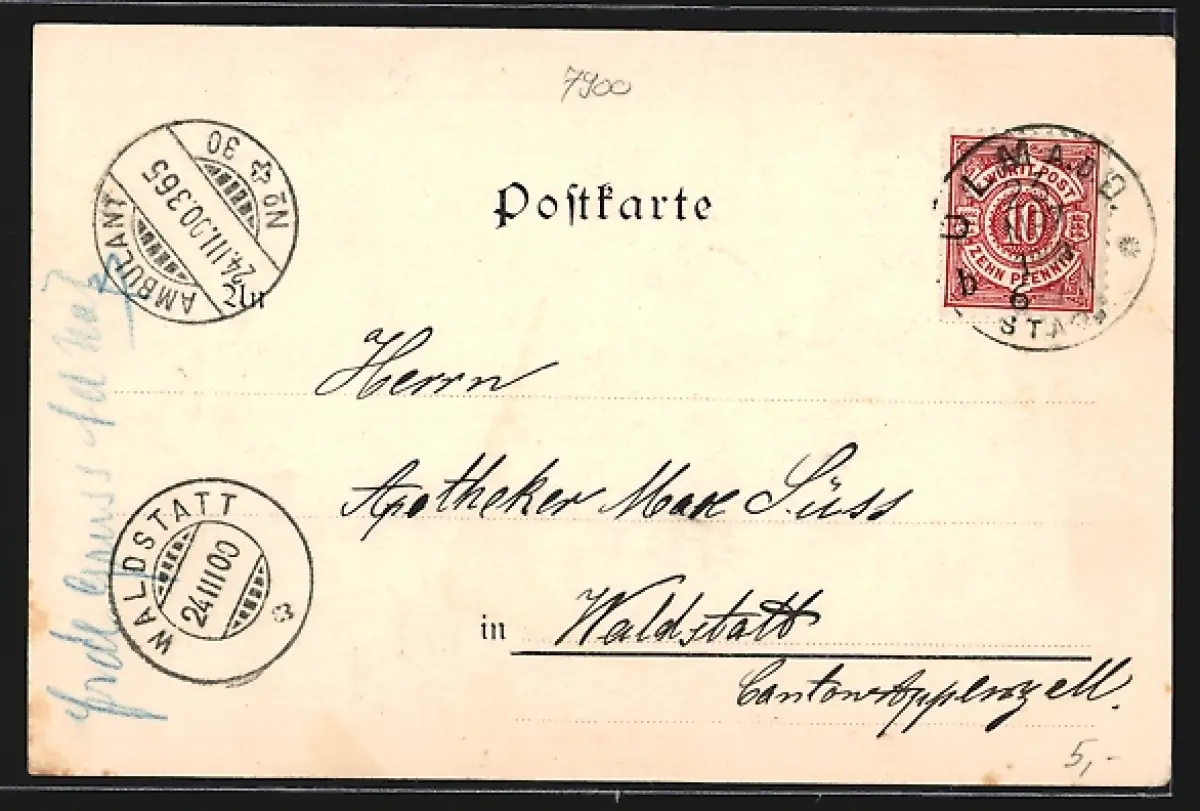 7900
AMBULANT Nº 30
24.III.00.365
ULM A.D.D.
b
STADT
WÜRTT. POST
10
ZEHN PFENNIG
Postkarte
An
Herrn
Apotheker Max Süss
in Waldstatt
Canton Appenzell.
WALDSTATT
24 III 00
5,-